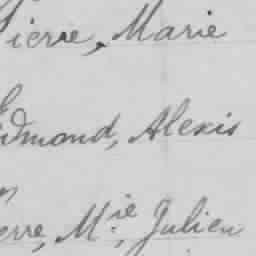 Pierre, Marie
Edmond, Alexis
erre, M.ie, Julien